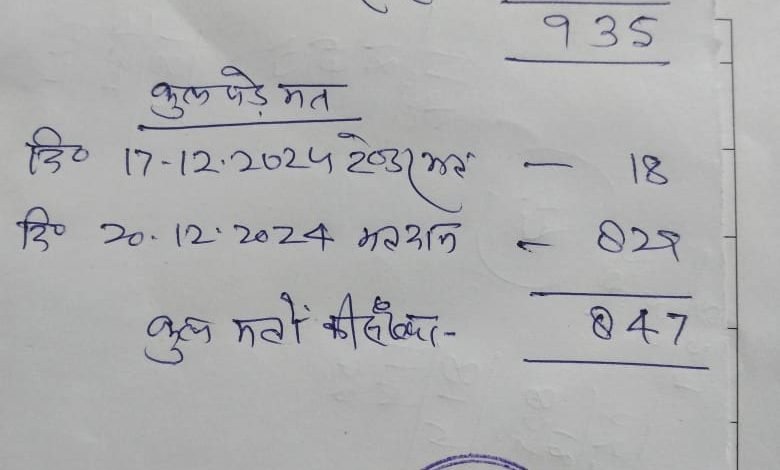 935
कुल पड़े मत
दि० 17-12-2024 टेण्डर मत — 18
दि० 20.12.2024 मतदान - 829
कुल मतों की संख्या - 847